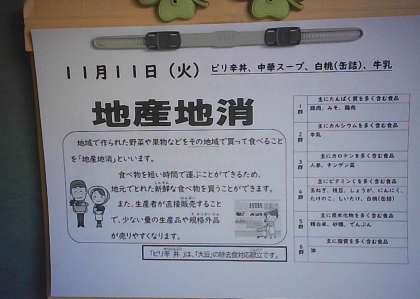 11月11日（火）ピリ辛丼、中華スープ、白桃(缶詰)、牛乳
地産地消
地域で作られた野菜や果物などをその地域で買って食べること
を「地産地消」といいます。
食べ物を短い時間で運ぶことができるため、
地元でとれた新鮮な食べ物を買うことができます。
また、生産者が直接販売すること
で、少ない量の生産品や規格外品
が売りやすくなります。
「ピリ辛丼」は、「大豆」の除去食対応献立です。
1群
主にたんぱく質を多く含む食品
豚肉、みそ、鶏肉
2群
主にカルシウムを多く含む食品
牛乳
3群
主にカロテンを多く含む食品
人参、チンゲン菜
4群
主にビタミンCを多く含む食品
玉ねぎ、枝豆、しょうが、にんにく、
たけのこ、しいたけ、白桃(缶詰)
5群
主に炭水化物を多く含む食品
精白米、砂糖、でんぷん
6群
主に脂質を多く含む食品
油